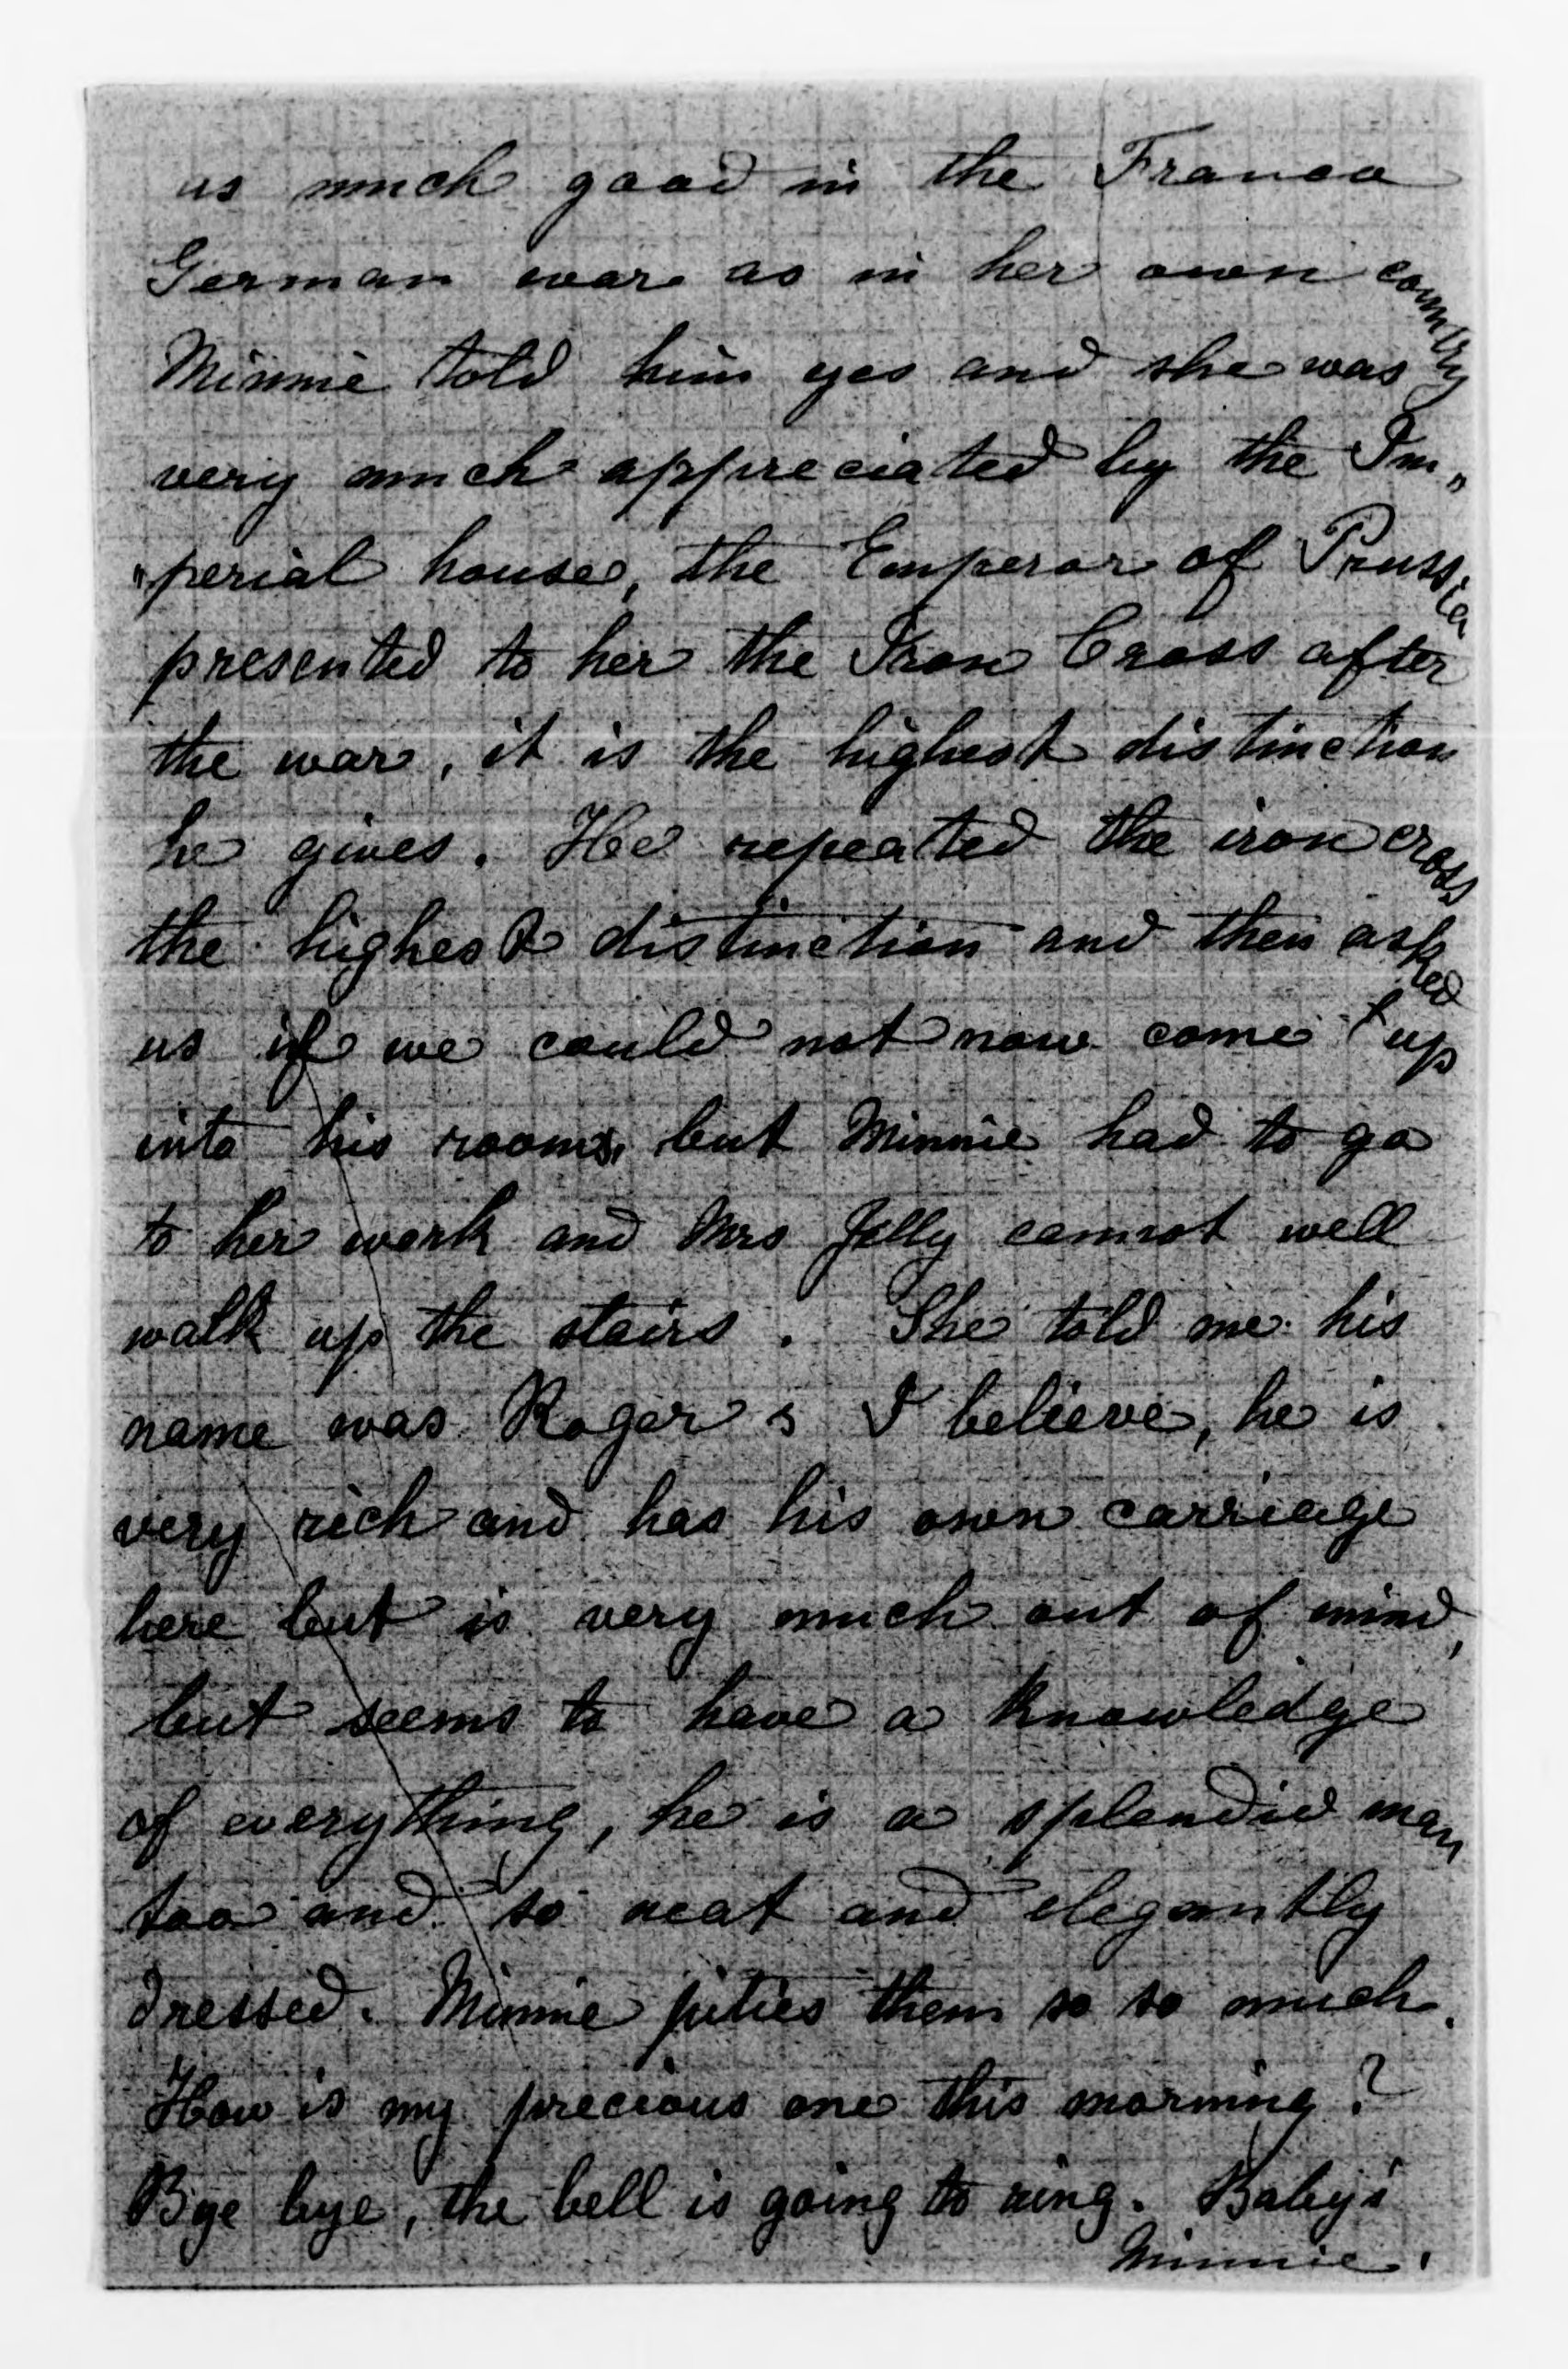 us much good in the Franco
German war as in her own country
Minnie told him yes and she was
very much appreciated by the Im„
„perial house, the Emperor of Prussia
presented to her the Iron Cross after
the war, it is the highest distinction
he gives. He repeated the iron cross
the highest distinction and then asked
us if we could not now come up
into his rooms, but Minnie had to go
to her work and Mrs Jelly cannot well
walk up the stairs. She told me his
name was Rogers I believe, he is
very rich and has his own carriage
here but is very much out of mind,
but seems to have a knowledge
of everything, he is a splendid man
too and so neat and elegantly
dressed. Minnie pities them so so much.
How is my precious one this morning?
Bye bye, the bell is going to ring. Baby's
Minnie.